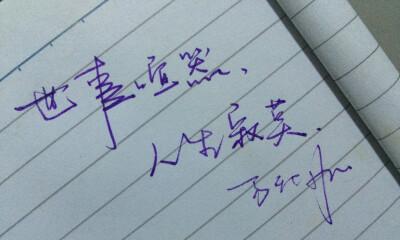 世事喧嚣、
人生寂莫.